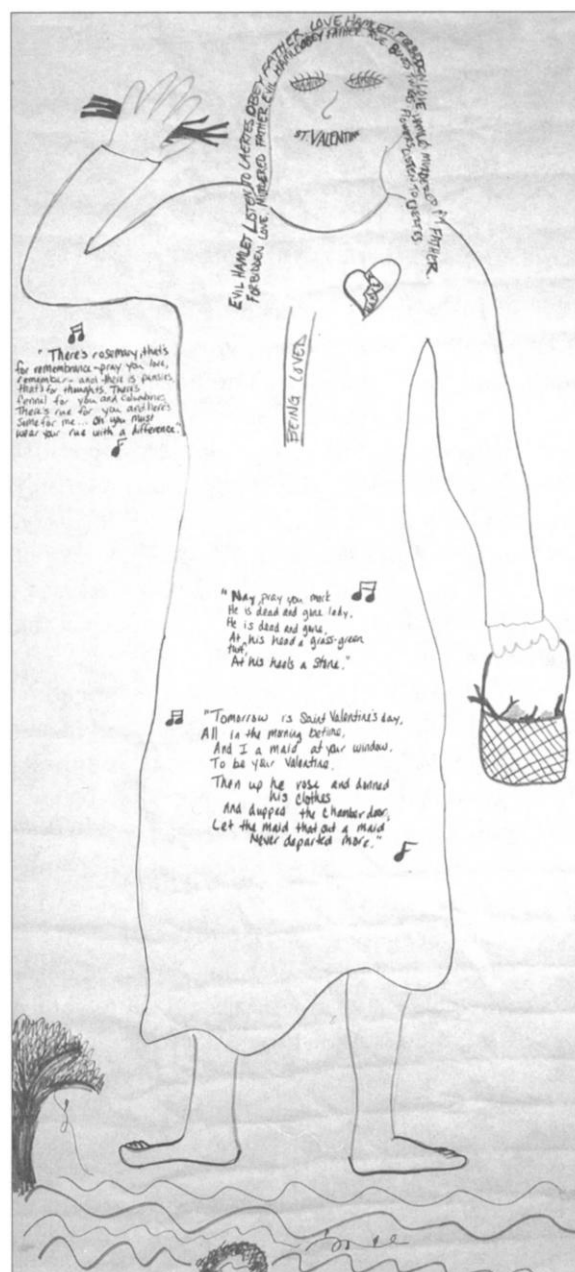 EVIL HAMLET LISTEN TO LAERTES OBEY FATHER, LOVE HAMLET FORBIDDEN LOVE
FORBIDDEN LOVE, MURDERED FATHER EVIL HAMLET OBEY FATHER
LISTEN TO LAERTES
FATHER
ST. VALENTINE
BEING LOVED
"There's rosemary, that's
for remembrance – pray you love,
remember – and there is pansies,
that's for thoughts. There's
fennel for you and columbines
There's rue for you and here's
some for me... Oh you must
wear your rue with a difference."
"Nay, pray you mark
He is dead and gone lady,
He is dead and gone,
At his head a grass-green
turf,
At his heels a stone."
"Tomorrow is Saint Valentine's day,
All in the morning betime,
And I a maid at your window,
To be your Valentine.
Then up he rose and donned
his clothes
And dupped the chamber door,
Let the maid that out a maid
Never departed more."